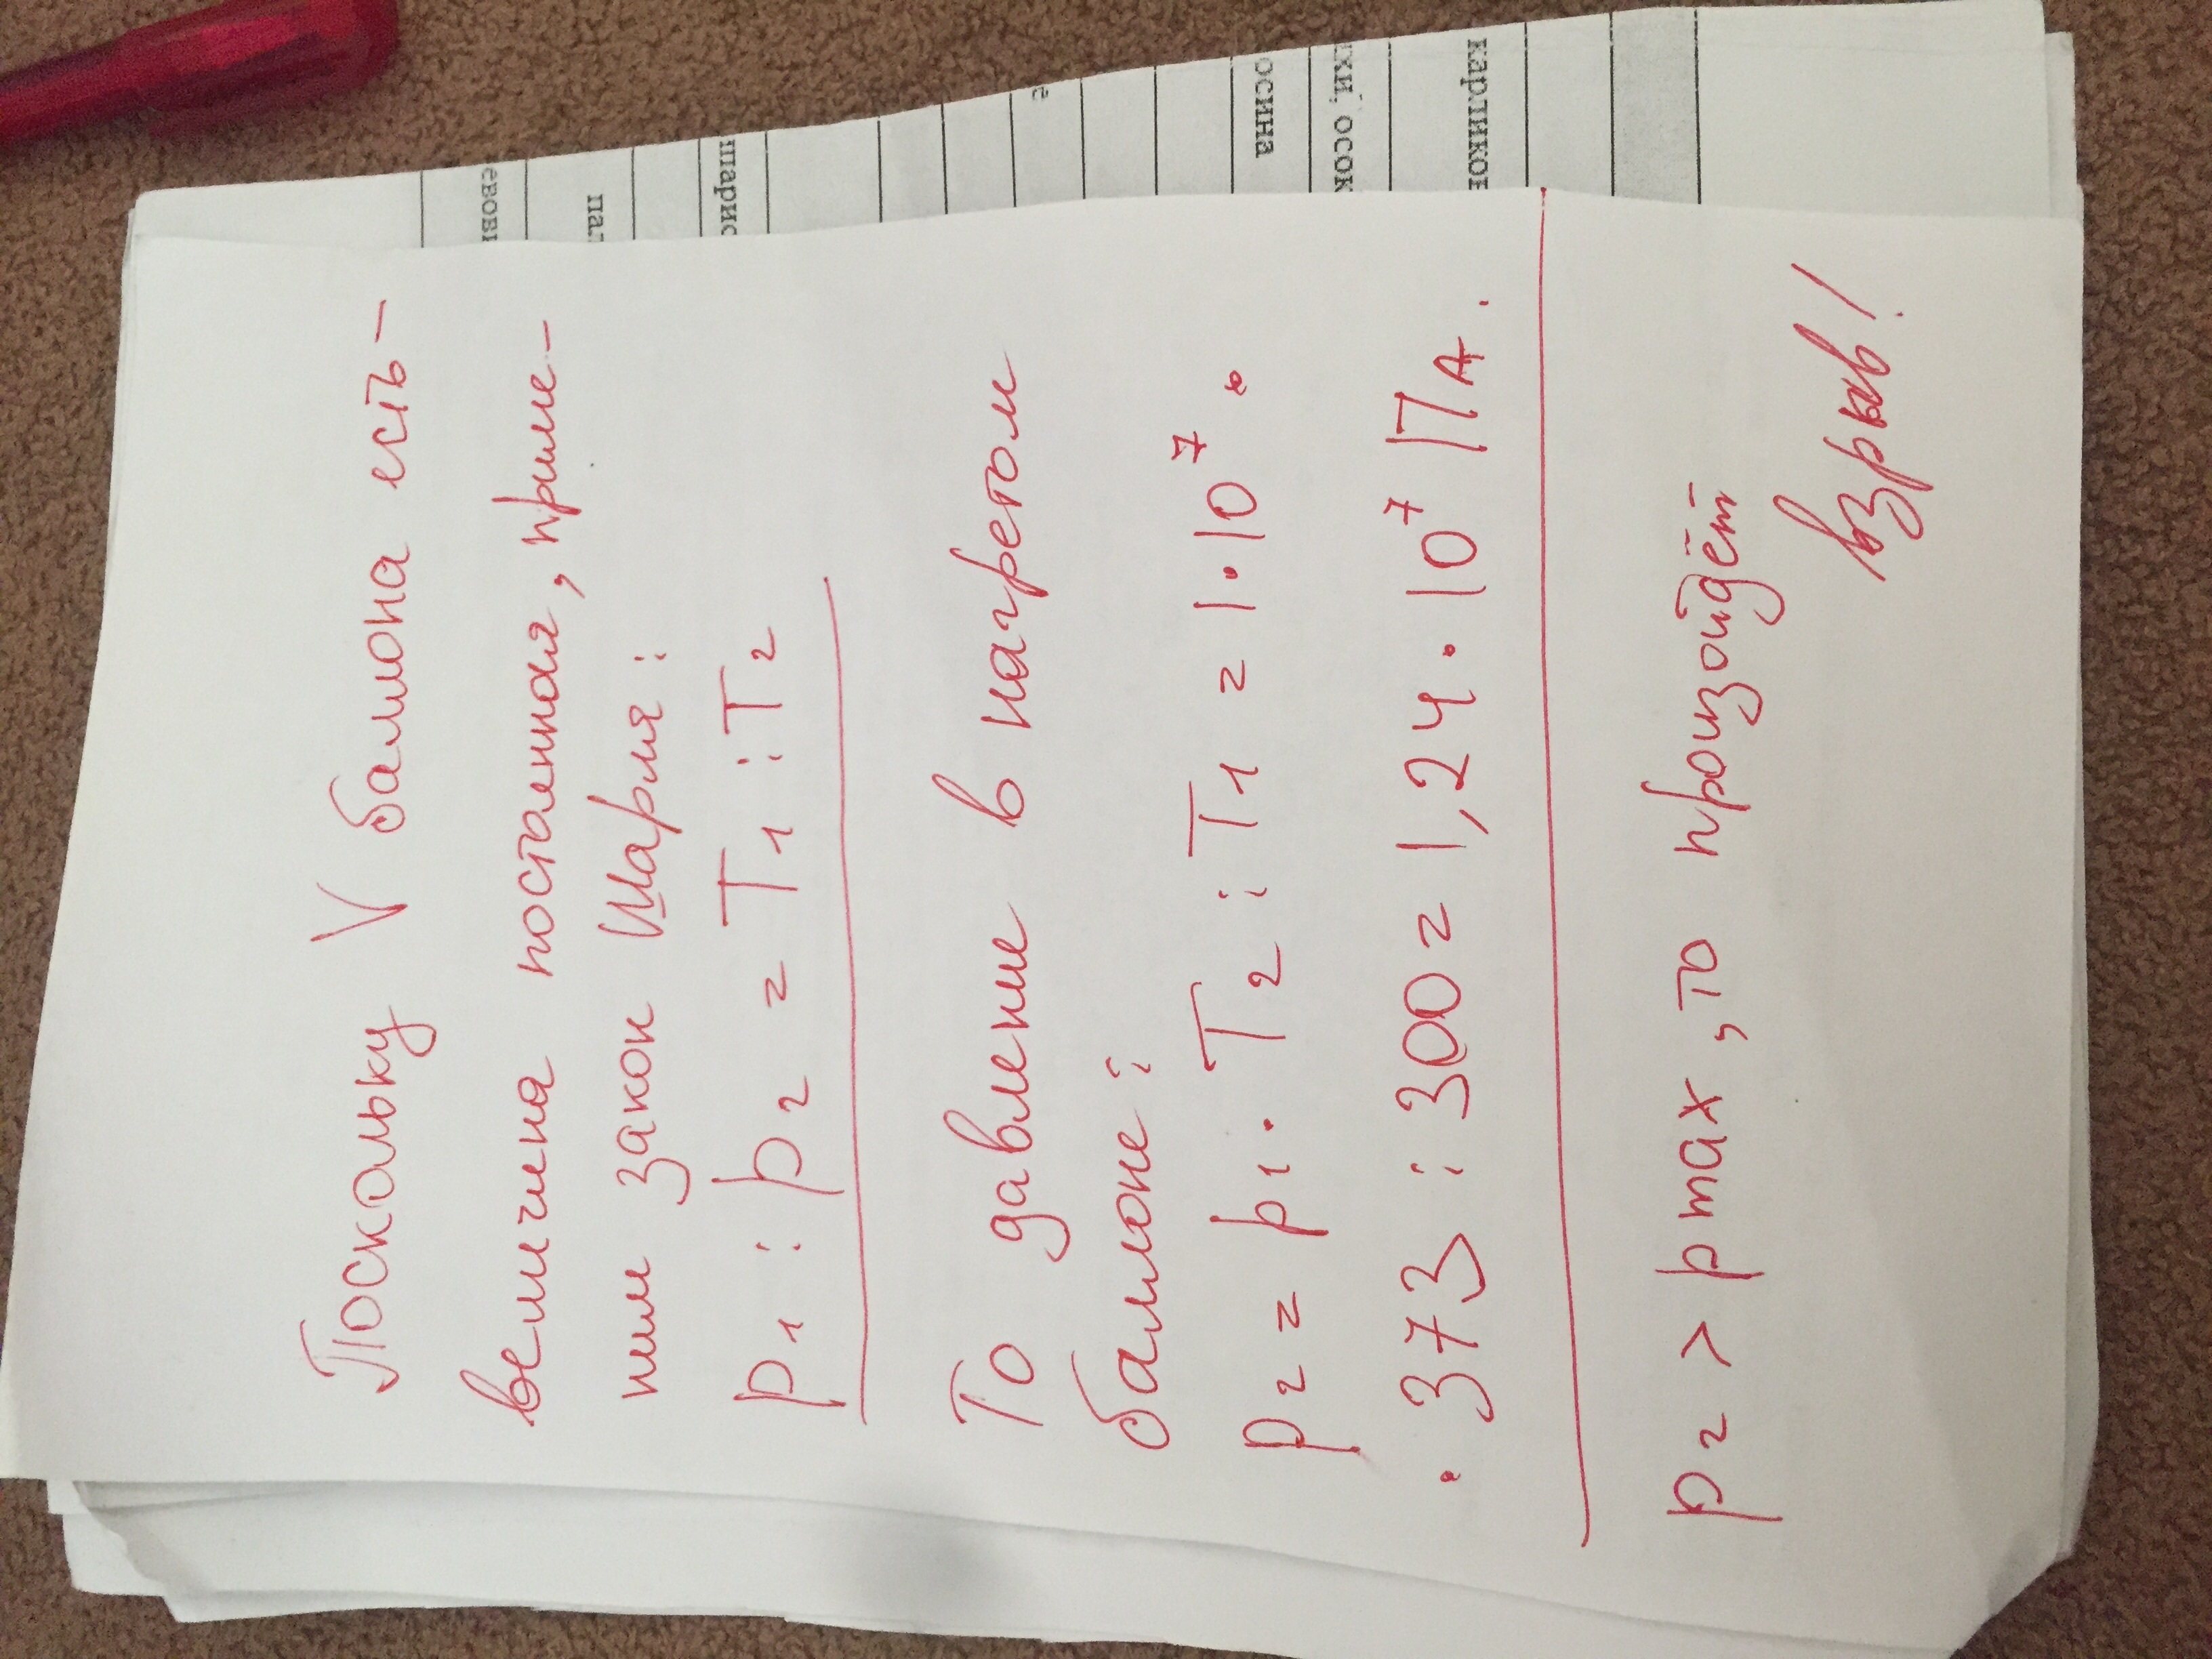 Поскольку V баллона есть –
величина постоянная, приме-
ним закон Шарля:
p1 : p2 = T1 : T2
То давление в нагретом
баллоне:
p2 = p1 · T2 : T1 = 1·10⁷ ·
· 373 : 300 = 1,24 · 10⁷ ПА.
p2 > pmax, то произойдёт
взрыв!
евовь
пал
шарис
ё
осина
ски, осок
карликов